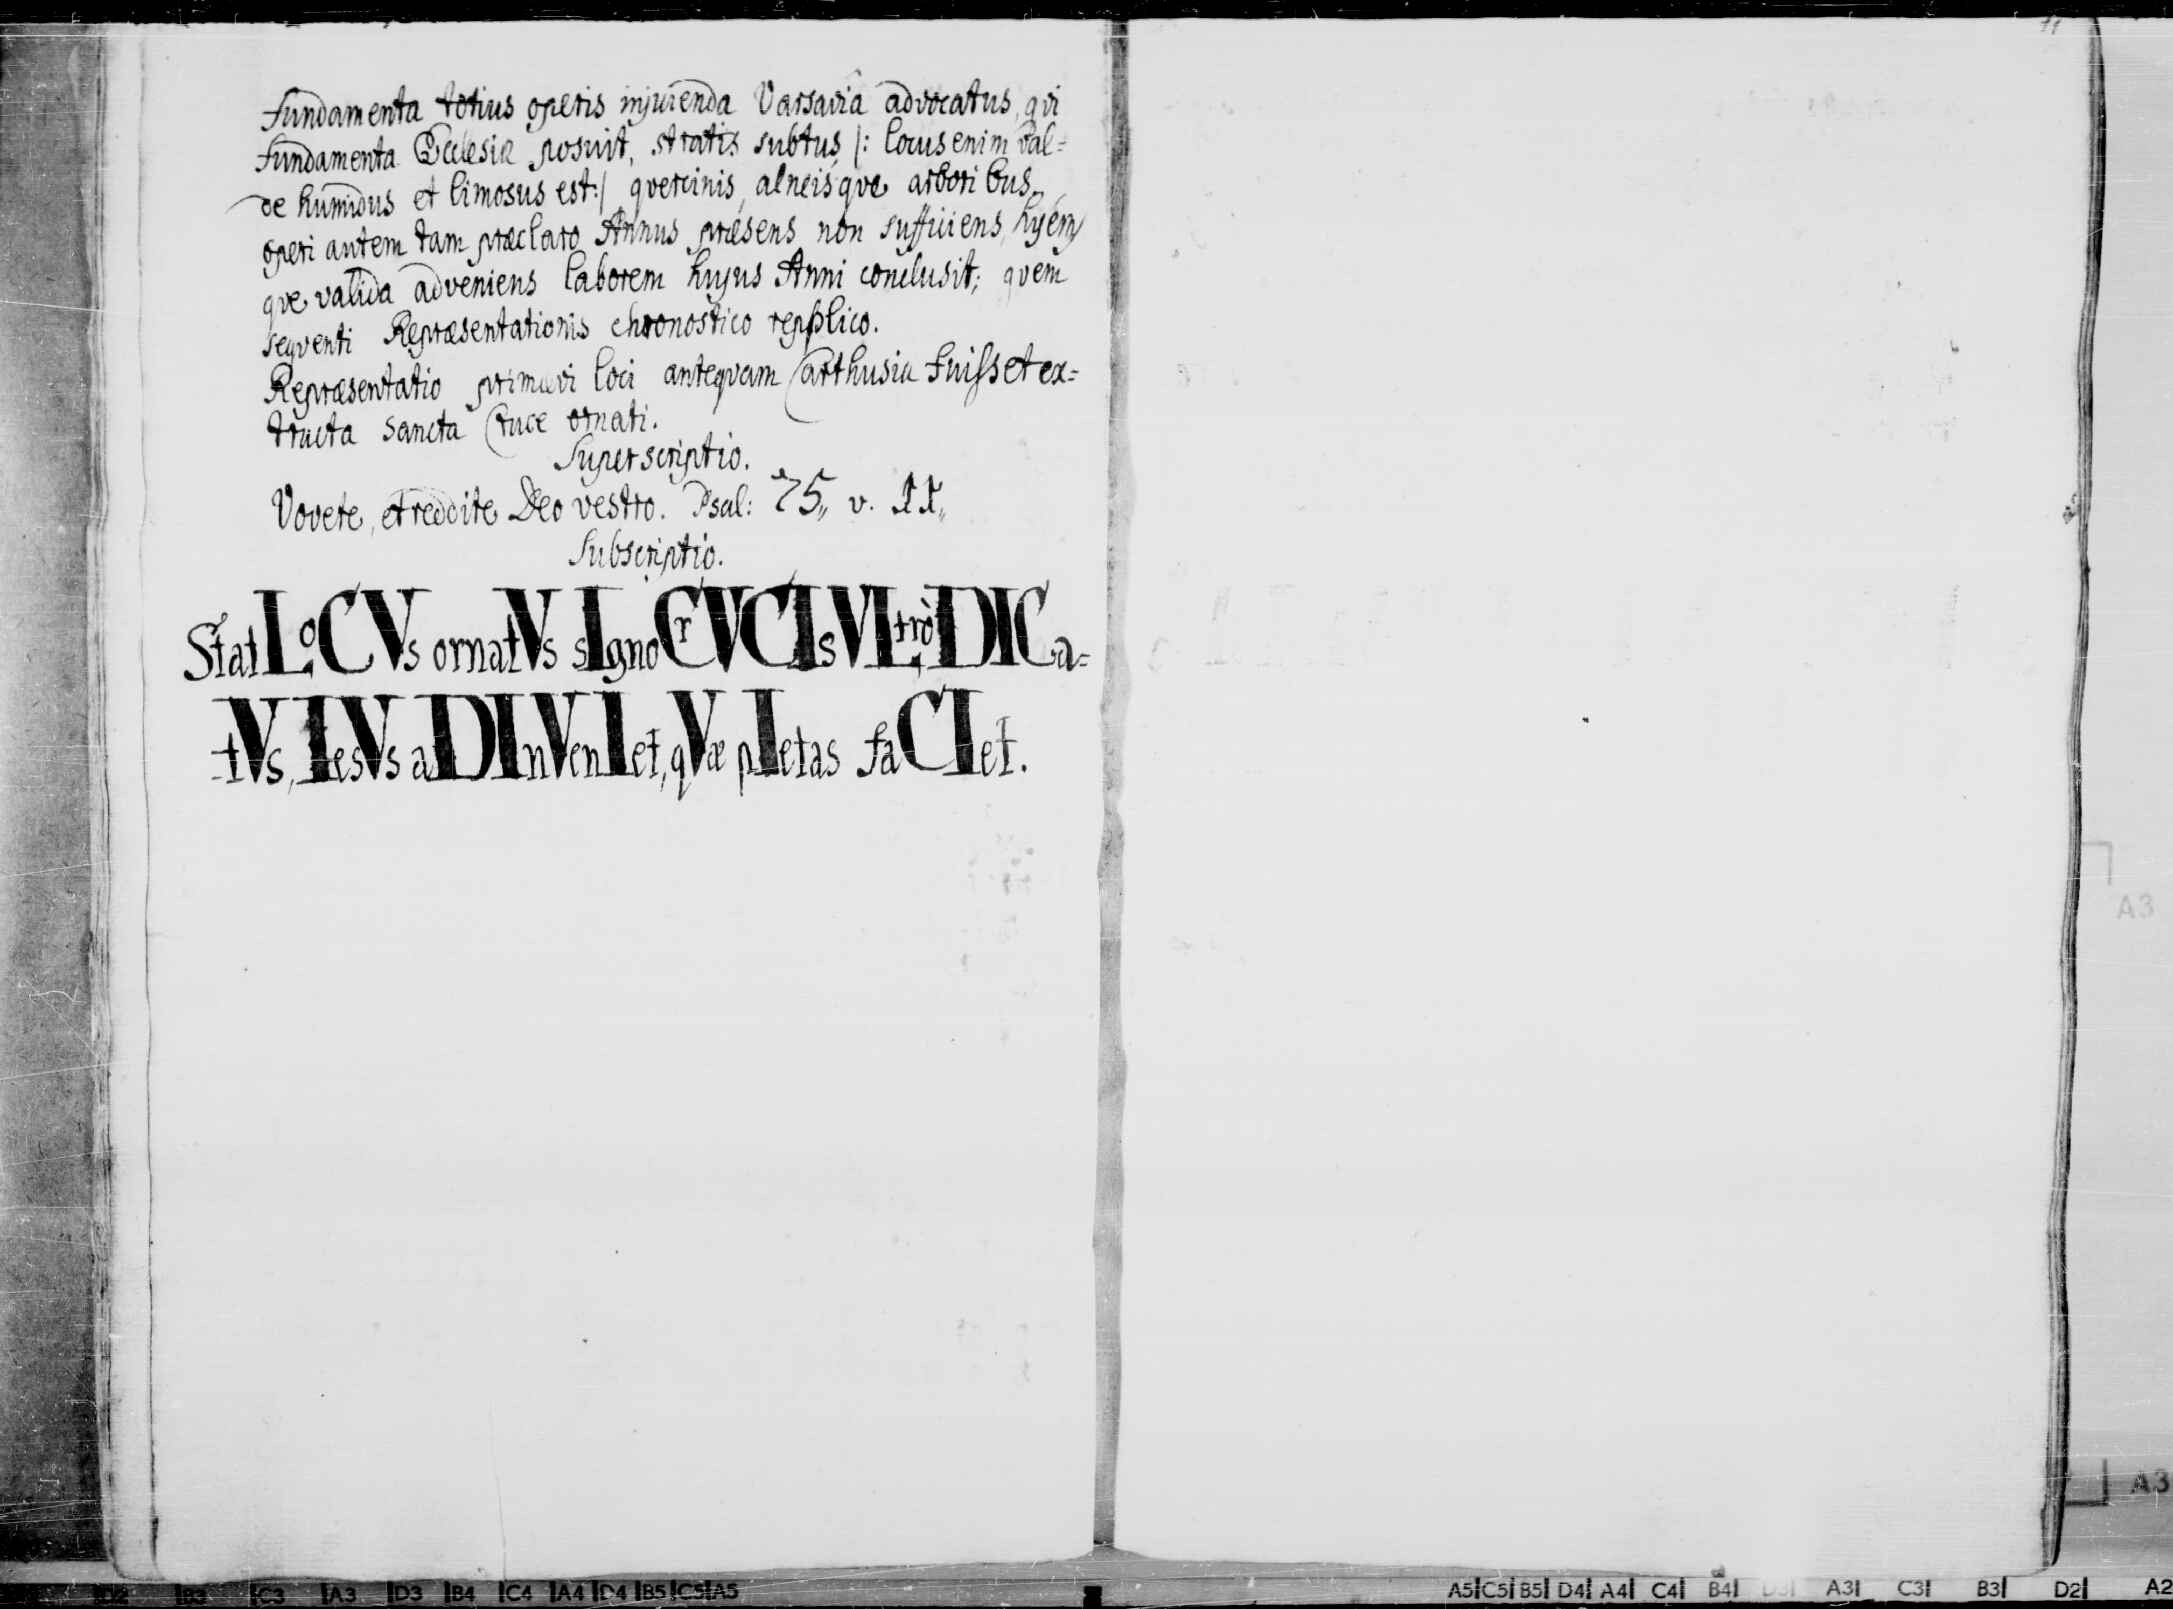 fundamenta totius operis injicienda Varsavia advocatus, qvi
fundamenta Ecclesia posuit, stratis subtus /: locus enim val=
de humidus et limosus est:/ qvercinis, alneisqve arboribus,
operi autem tam præclaro Annus præsens non sufficiens, hyem
qve valida adveniens laborem hujus Anni conclusit; qvem
seqventi Repræsentationis chronostico repplico.
Repræsentatio primævi loci anteqvam Carthusia fuisset ex=
tructa sancta Cruce ornati.
Superscriptio.
Vovete, et reddite Deo vestro. Psal: 75,, v. 11,,
Subscriptio.
Stat LoCVs ornatVs sIgno CrVCIs VLtrò DICa=
tVs, IesVs aDInVenIet, qVæ pIetas faCIet.
11
A3
A3
D2 B3 C3 A3 D3 B4 C4 A4 D4 B5 C5 A5
A5 C5 B5 D4 A4 C4 B4 D3 A3 C3 B3 D2 A2